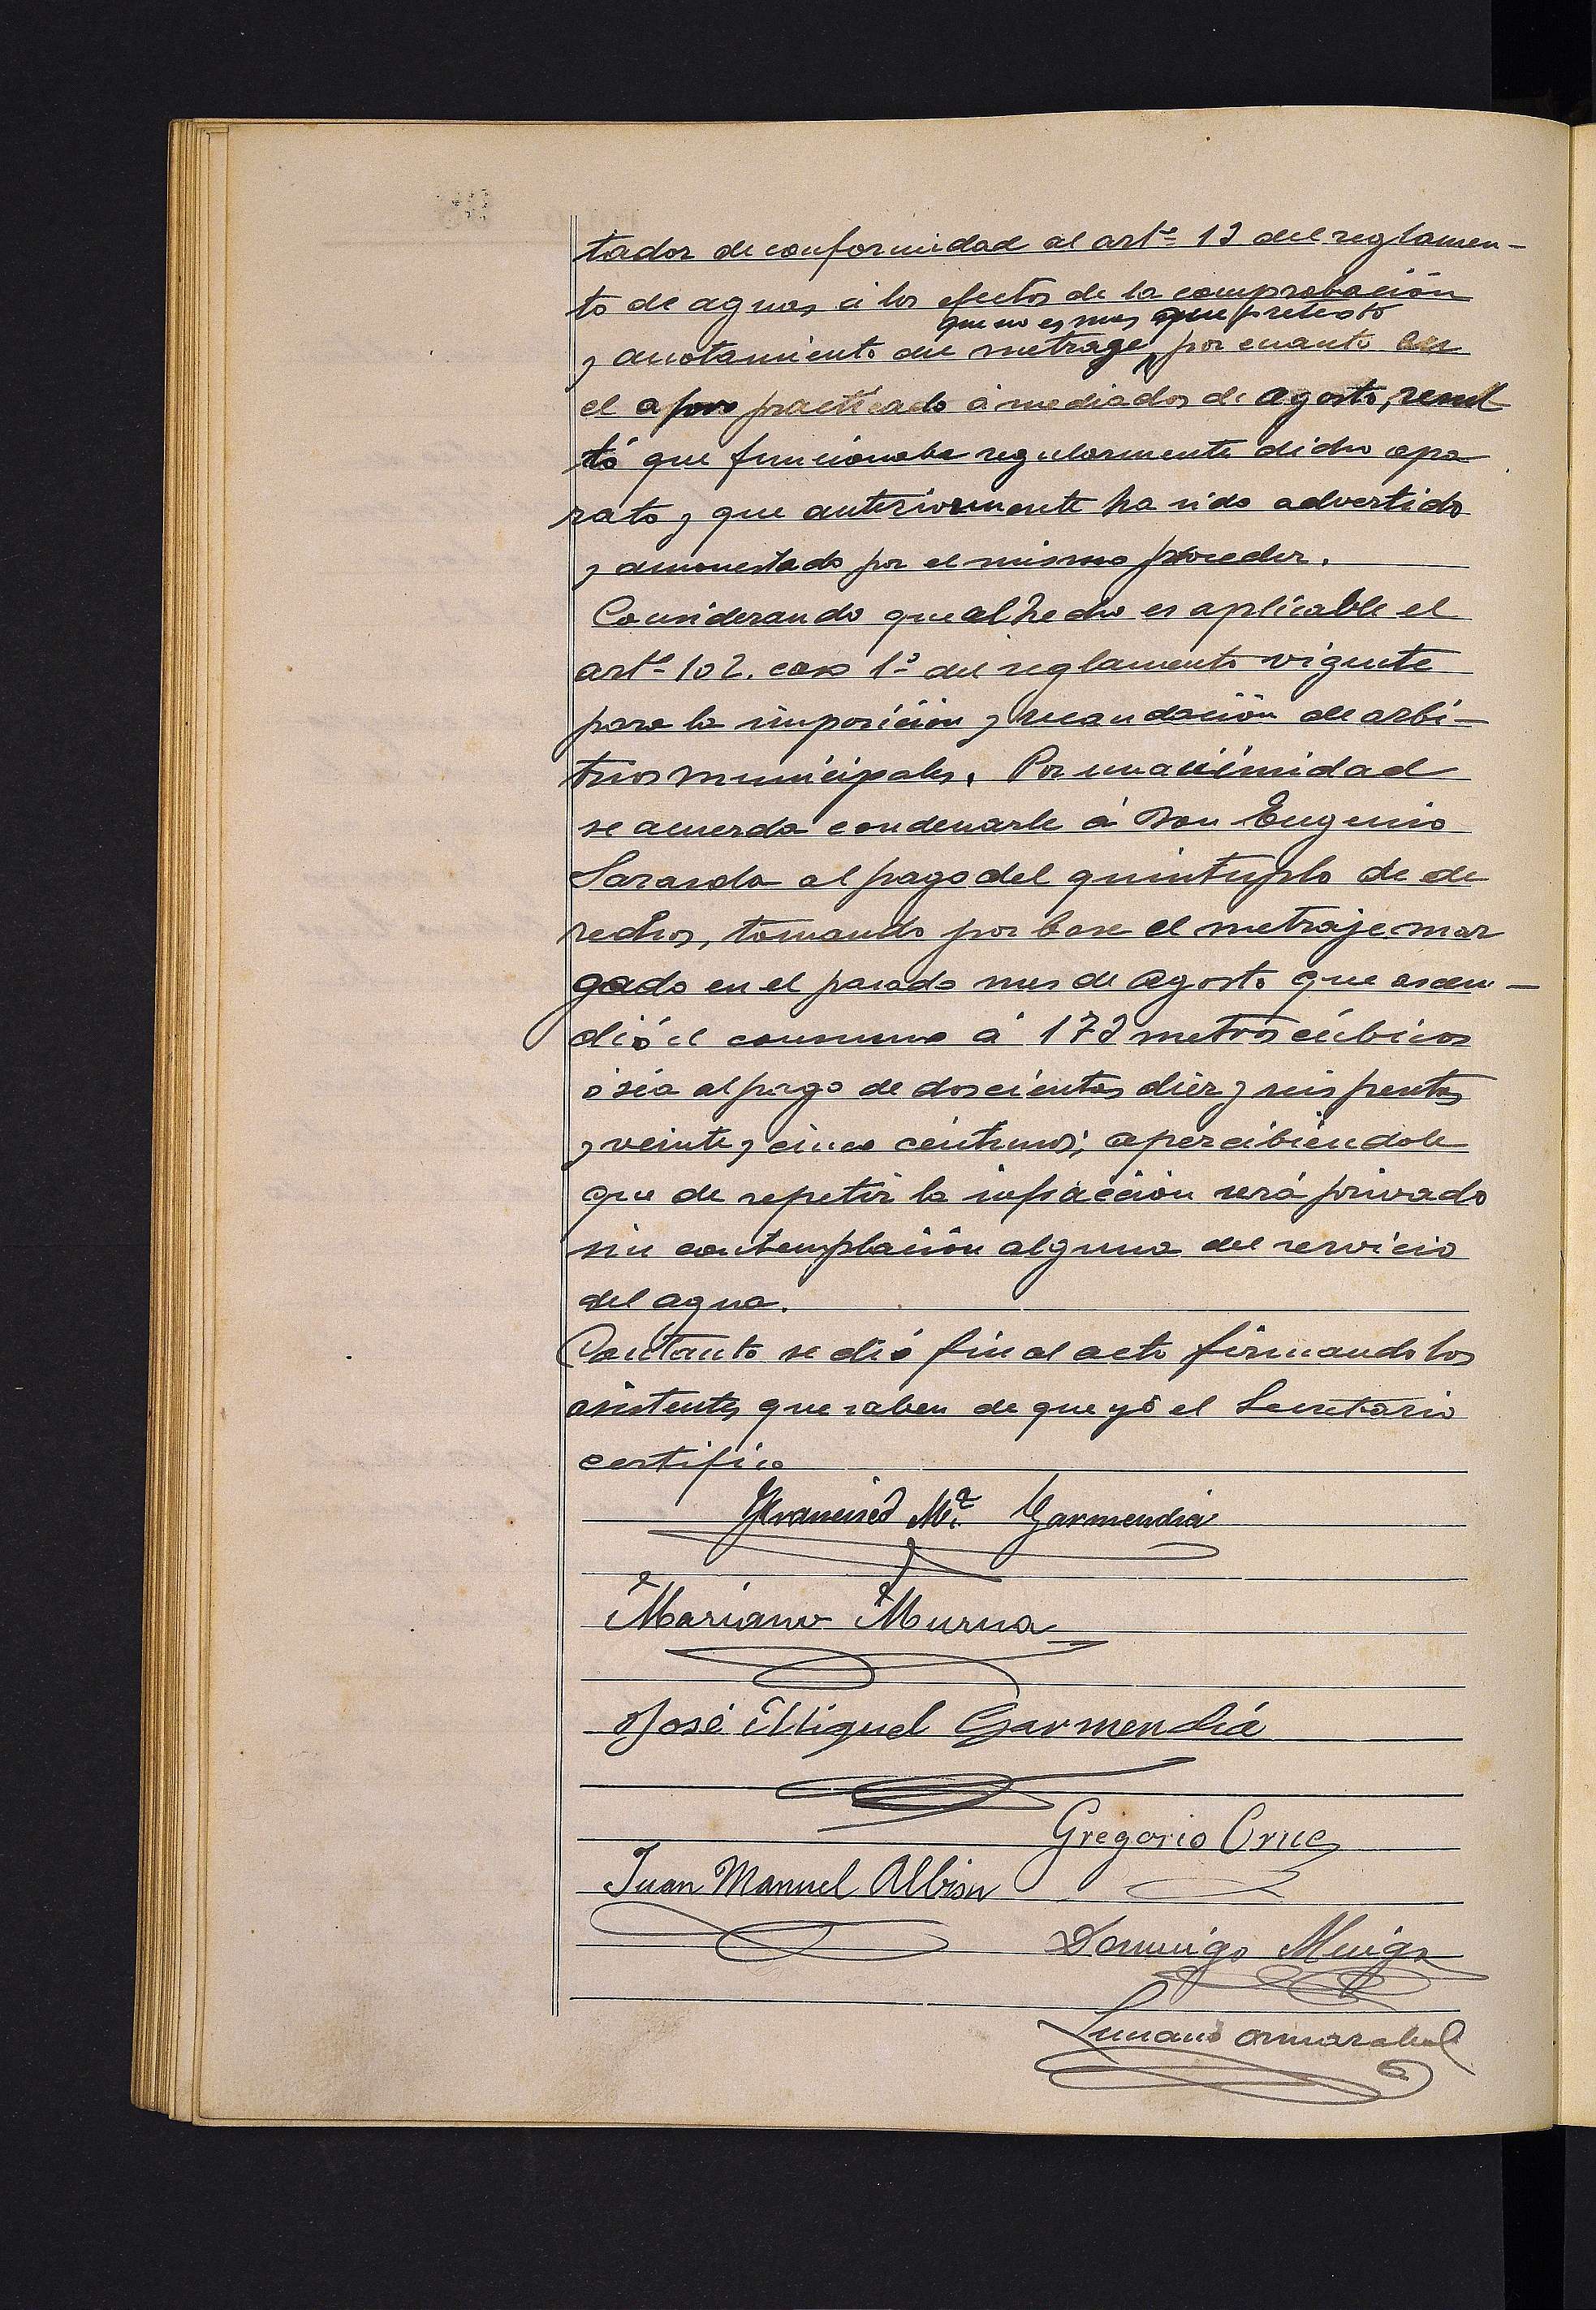 tador de conformidad al artº 13 del reglamen-
to de aguas á los efectos de la comprobación
que no es mas que pretesto
y anotamiento del metrage, por cuanto en
el aforo practicado á mediados de agosto, resul
tó que funcionaba regularmente dicho apa
rato y que anteriormente ha sido advertido
y amonestado por el mismo proceder.
Considerando que al hecho es aplicable el
artº 102. caso 1º del reglamento vigente
para la imposición y recaudación de arbi-
trios municipales. Por unanimidad
se acuerda condenarle á Don Eugenio
Sarasola al pago del quintuplo de de
rechos, tomando por base el metraje mar
gado en el pasado mes de agosto que ascen-
dió el consumo á 173 metros cúbicos
ó sea al pago de doscientas diez y seis pesetas
y veinte y cinco céntimos; apercibiendole
que de repetir la infracción será privado
sin contemplación alguna del servicio
del agua.
Contanto se dió fin al acto firmando los
asistentes que saben de que yó el Secretario
certifico
Francisco Mª Garmendia
Mariano Murua
José Miguel Garmendia
Gregorio Orue
Juan Manuel Albisu
Domingo
Luciano